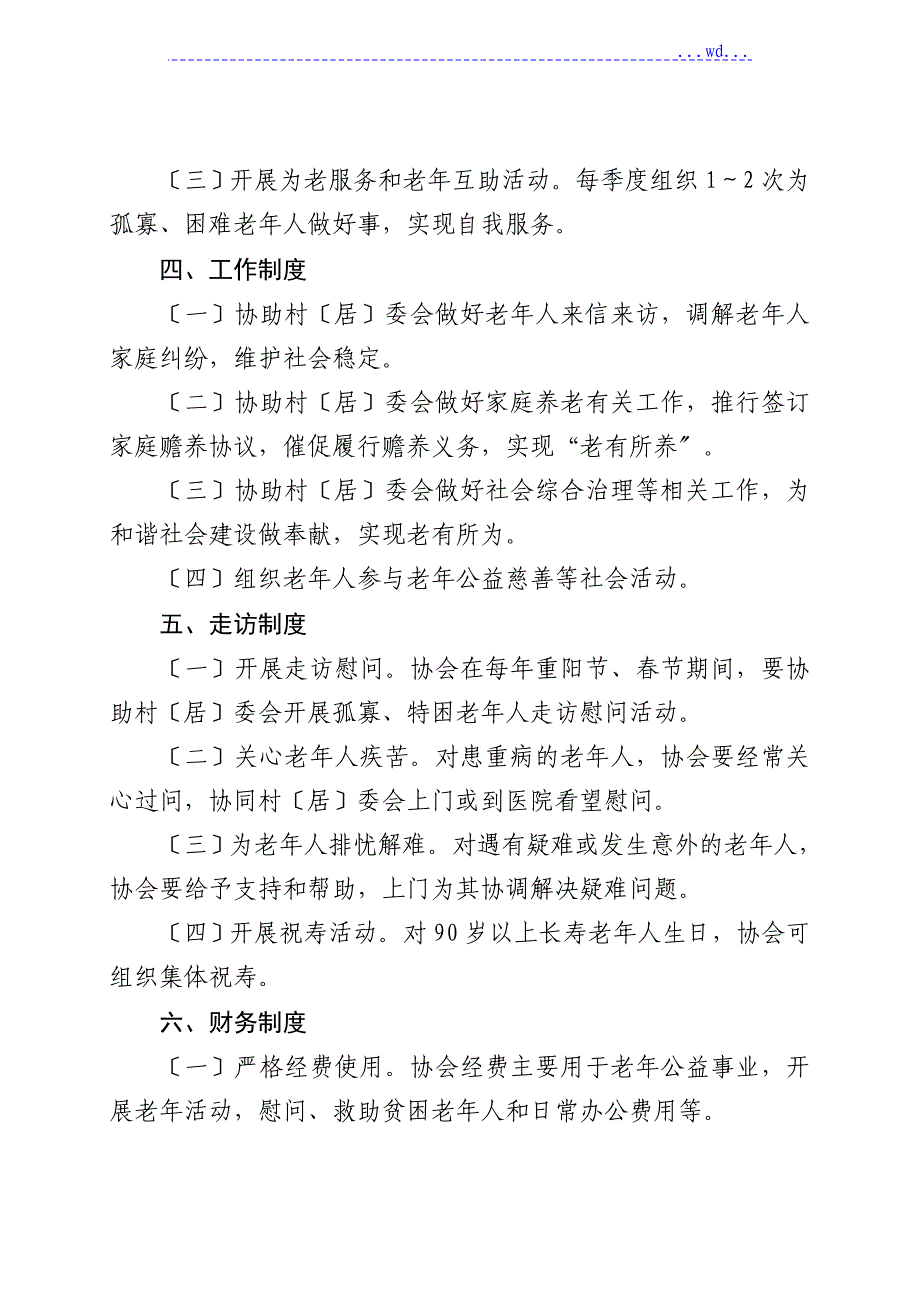 ...wd...
〔三〕开展为老服务和老年互助活动。每季度组织 1～2 次为
孤寡、困难老年人做好事，实现自我服务。
四、工作制度
〔一〕协助村〔居〕委会做好老年人来信来访，调解老年人
家庭纠纷，维护社会稳定。
〔二〕协助村〔居〕委会做好家庭养老有关工作，推行签订
家庭赡养协议，催促履行赡养义务，实现“老有所养〞。
〔三〕协助村〔居〕委会做好社会综合治理等相关工作，为
和谐社会建设做奉献，实现老有所为。
〔四〕组织老年人参与老年公益慈善等社会活动。
五、走访制度
〔一〕开展走访慰问。协会在每年重阳节、春节期间，要协
助村〔居〕委会开展孤寡、特困老年人走访慰问活动。
〔二〕关心老年人疾苦。对患重病的老年人，协会要经常关
心过问，协同村〔居〕委会上门或到医院看望慰问。
〔三〕为老年人排忧解难。对遇有疑难或发生意外的老年人，
协会要给予支持和帮助，上门为其协调解决疑难问题。
〔四〕开展祝寿活动。对 90 岁以上长寿老年人生日，协会可
组织集体祝寿。
六、财务制度
〔一〕严格经费使用。协会经费主要用于老年公益事业，开
展老年活动，慰问、救助贫困老年人和日常办公费用等。